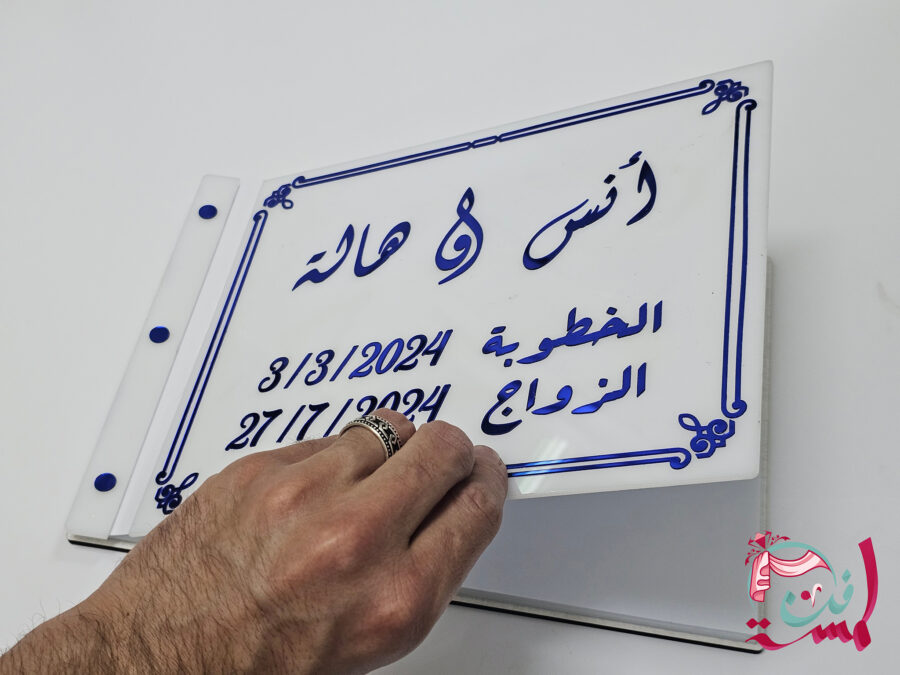 أنس و هالة
الخطوبة 3/3/2024
الزواج 27/7/2024
لمسة فن